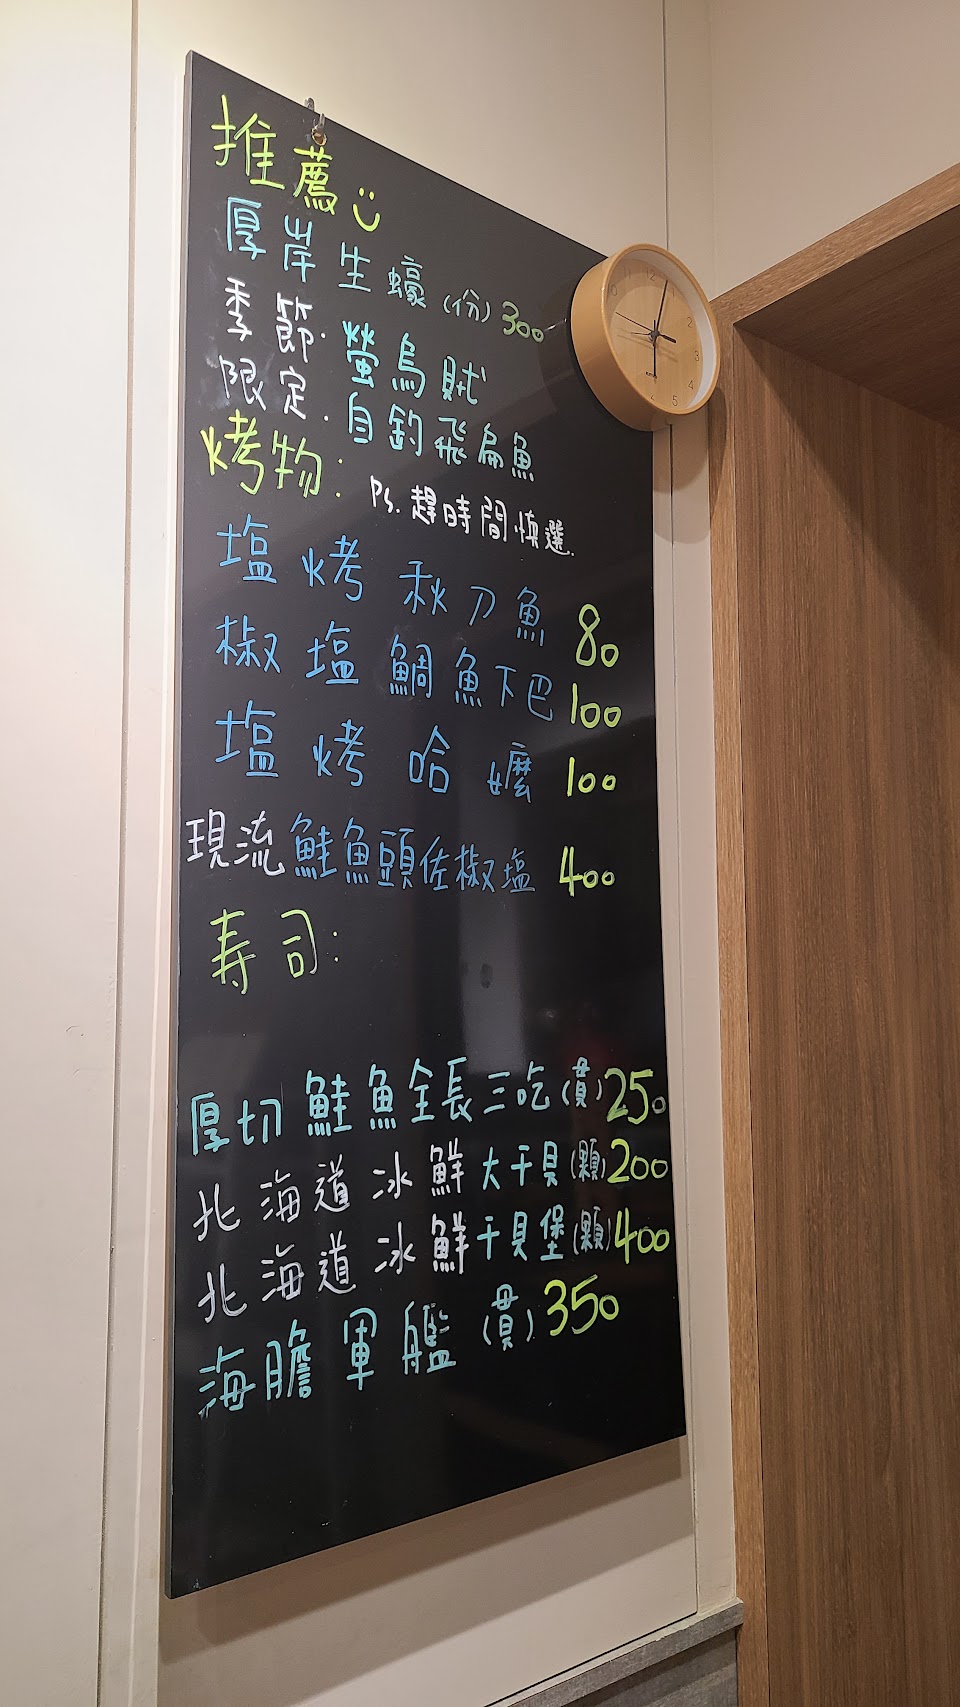 推薦
厚岸生蠔(份)300
季節限定:螢烏賊
自釣飛扁魚
烤物:
Ps.趕時間慎選.
塩烤秋刀魚 80
椒塩鯛魚下巴 100
塩烤哈嬤 100
現流鮭魚頭佐椒塩 400
寿司:
厚切鮭魚全長三吃(貫)250
北海道冰鮮大干貝(顆)200
北海道冰鮮干貝堡(顆)400
海膽軍艦(貫)350